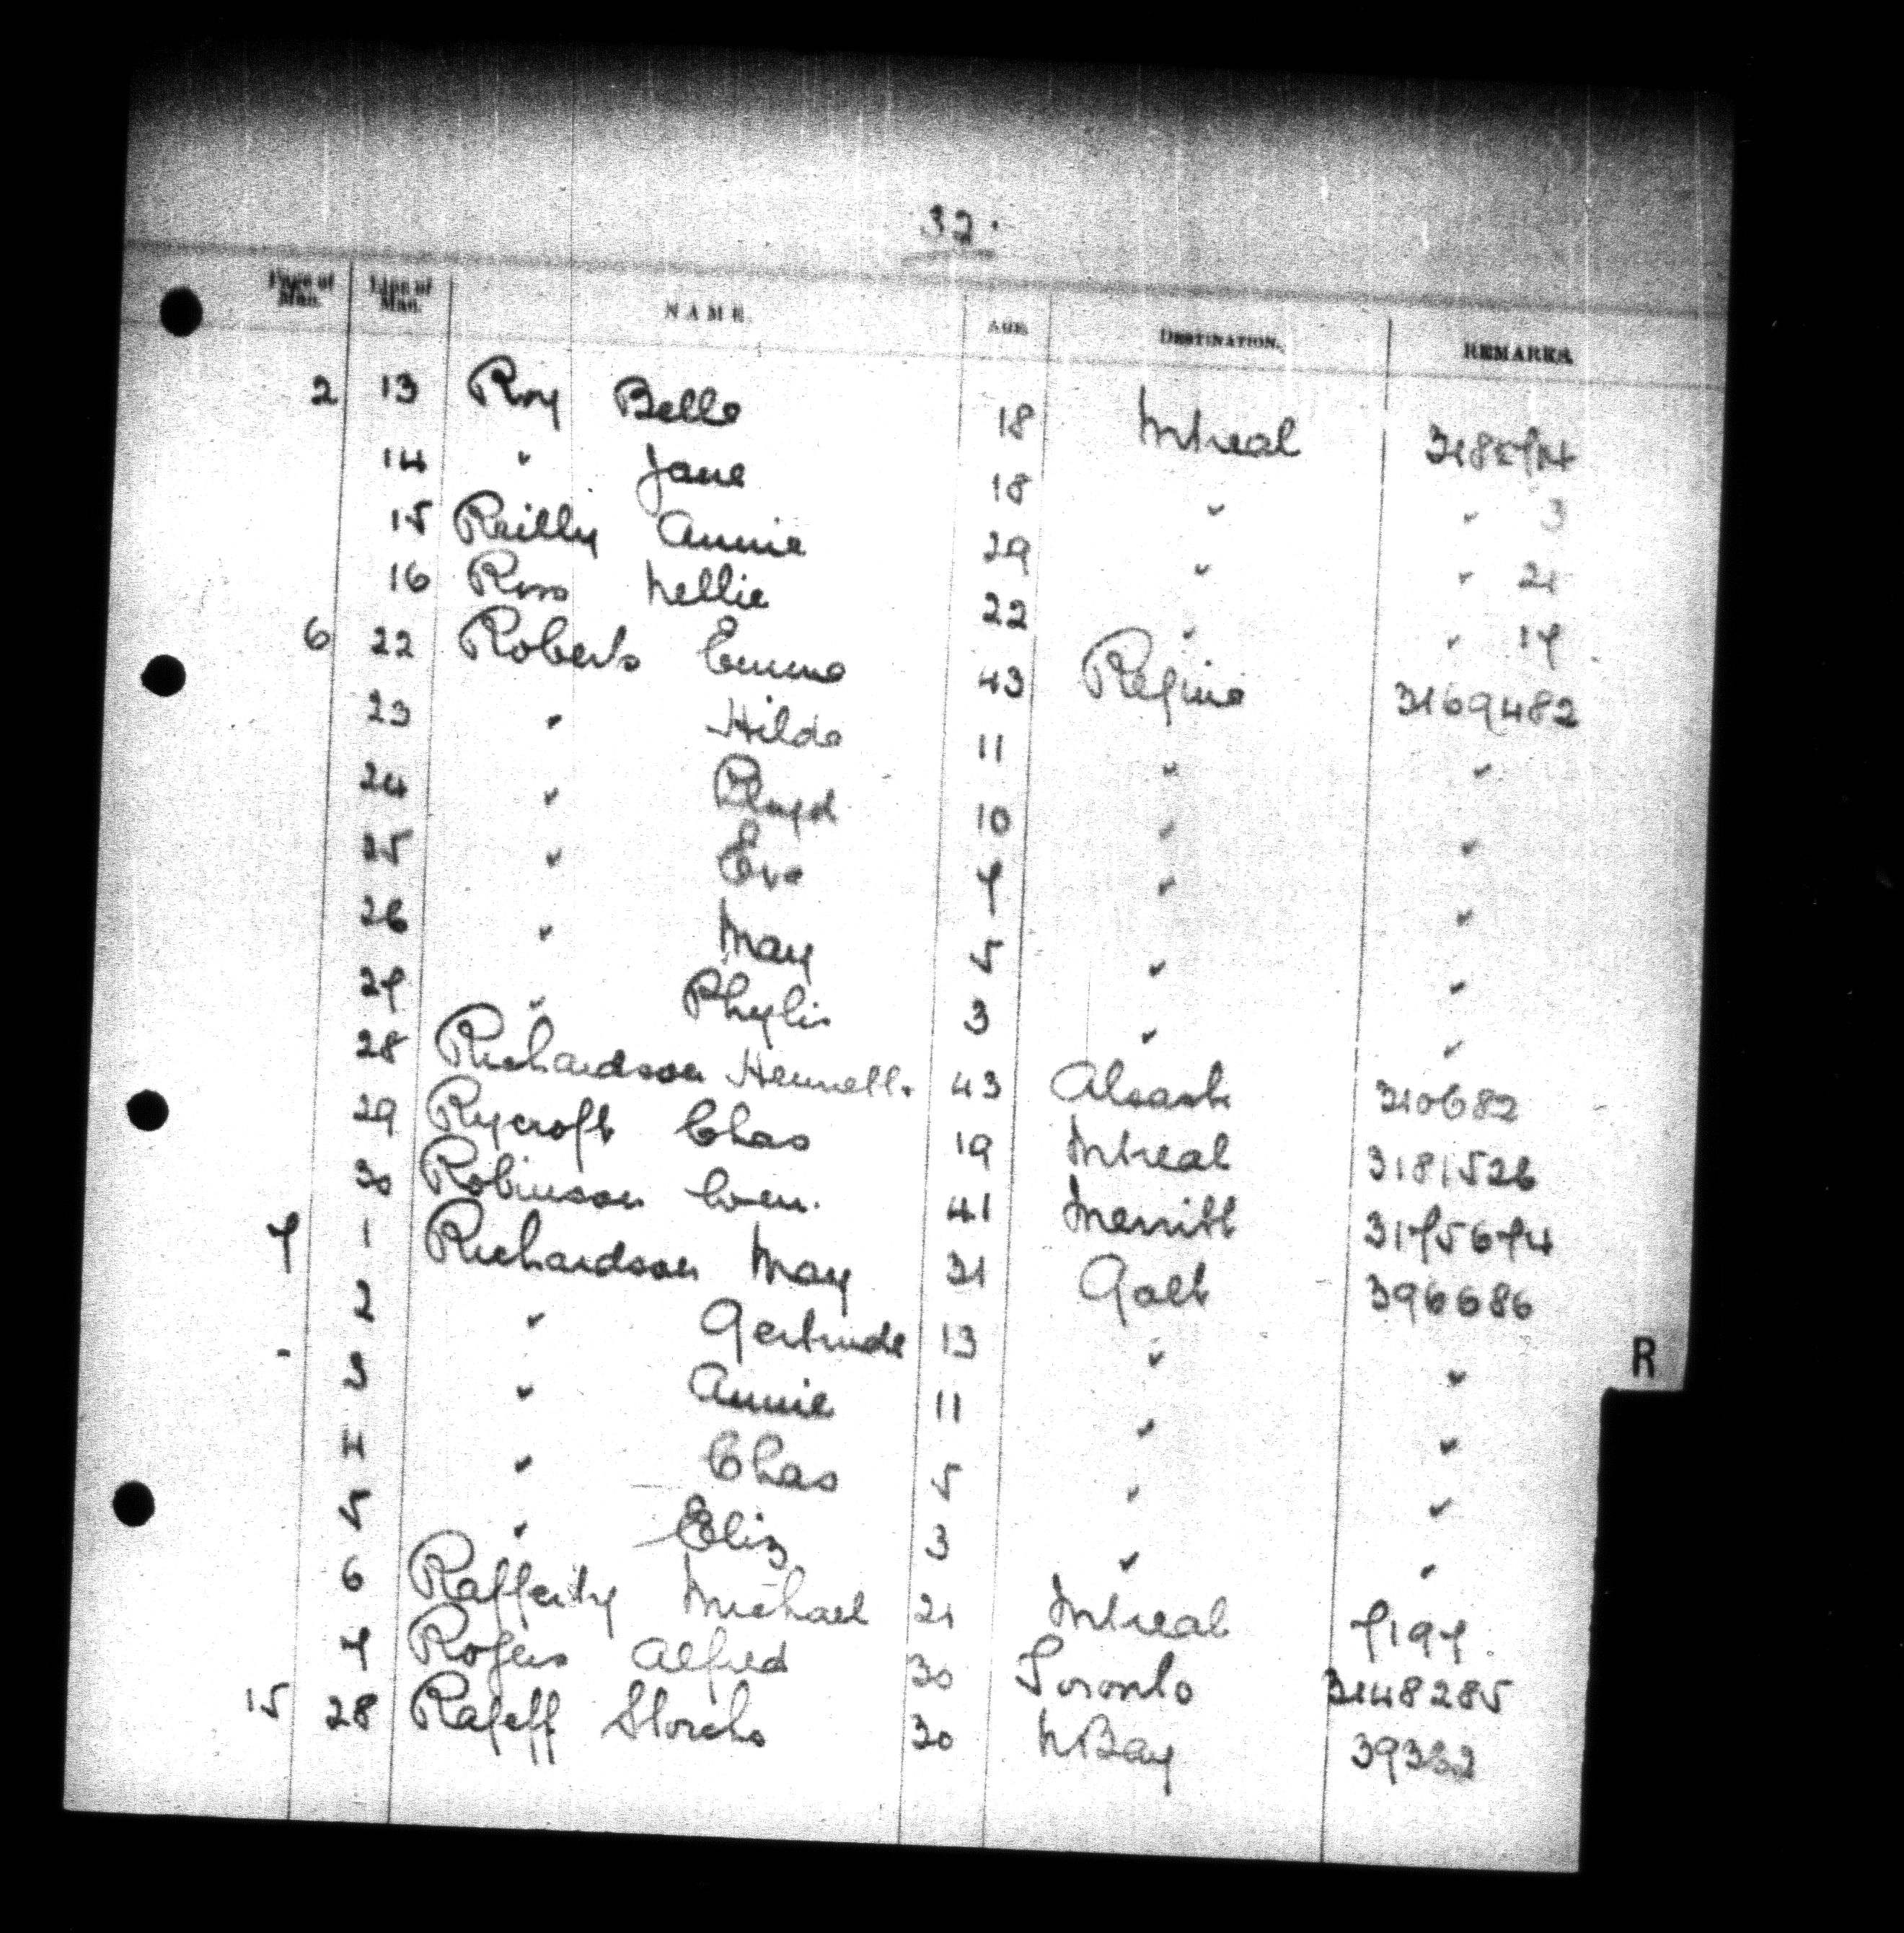 32.
Page of Man. Line of Man. NAME. AGE. DESTINATION. REMARKS.
2 13 Roy Belle 18 Mtreal
14 " Jane 18 " " 3
15 Reilly Annie 29 " " 21
16 Ross Nellie 22 " " 17
6 22 Roberts Emma 43 Regina 3169482
23 " Hilda 11 " "
24 " Lloyd 10 " "
25 " Eva 7 " "
26 " May 5 " "
27 " Phylis 3 " "
28 Richardson 43 Alsask 310682
29 Rycroft Chas 19 Mtreal 3181526
30 Robinson 41 Merritt 3175674
7 1 Richardson May 31 Galt 396686
2 " Gertrude 13 " "
3 " Annie 11 " "
4 " Chas 5 " "
5 " Eliz 3 " "
6 Rafferty Michael 21 Mtreal 7197
7 Rogers Alfred 30 Toronto 3148285
15 28 Rajeff 30 N Bay 39332
R